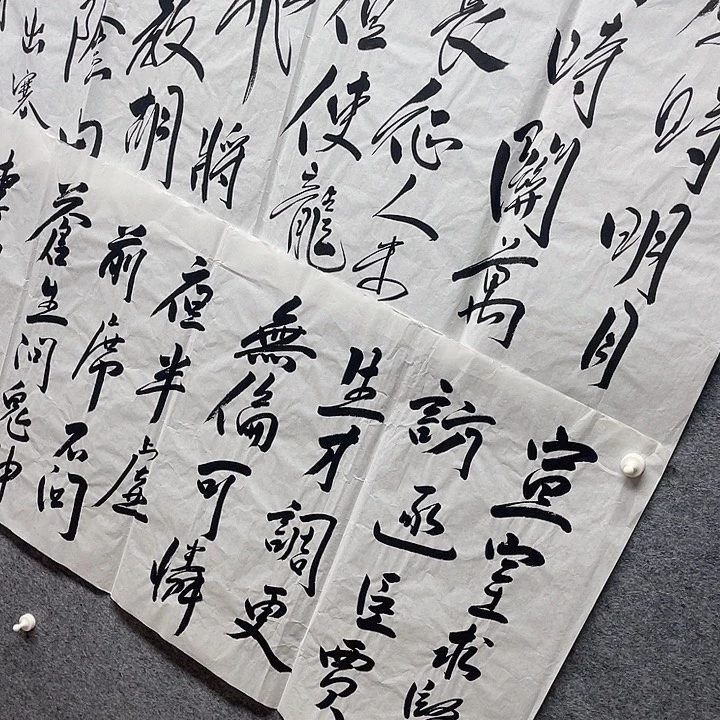 時明月
時關萬
長征人未
但使龍
飛將
教胡
陰山
出塞
宣室求賢
訪逐臣賈
生才調更
無倫可憐
夜半虛
前席不問
蒼生問鬼神